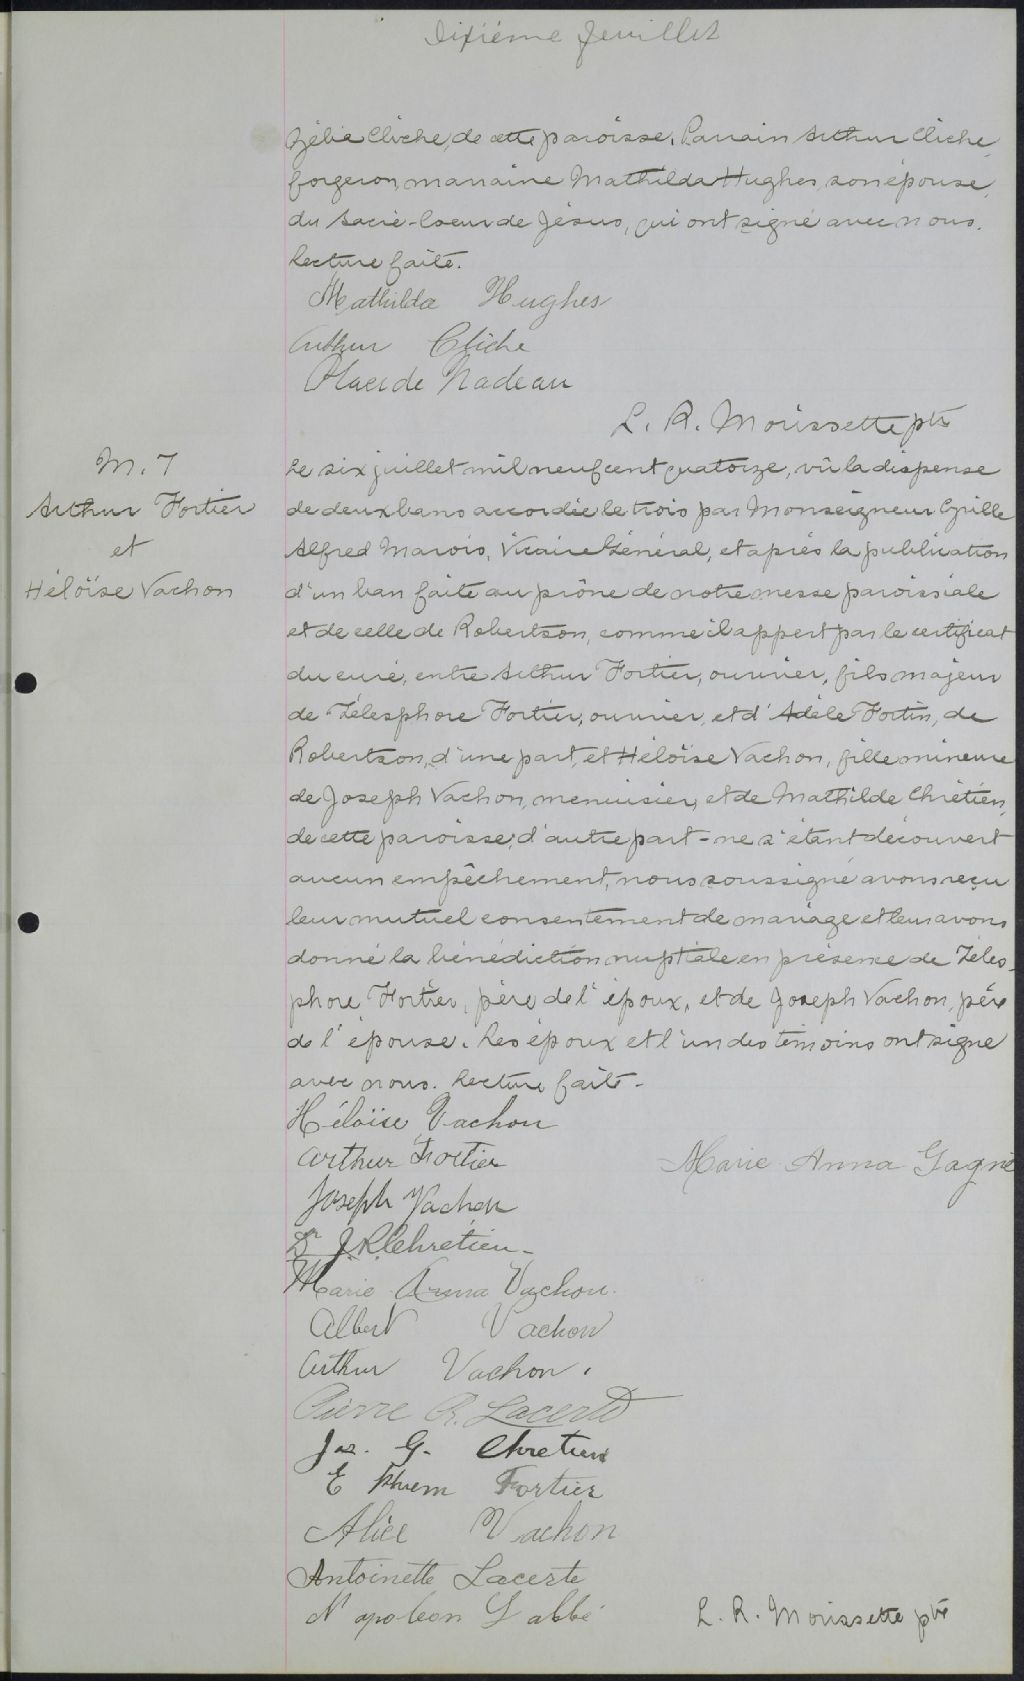 Dixième feuillet
Zélia Cliche, de cette paroisse. Parrain Arthur Cliche,
forgeron, marraine Mathilda Hughes, son épouse,
du Sacré-Coeur de Jésus, qui ont signé avec nous.
Lecture faite.
Mathilda Hughes
Arthur Cliche
Placide Nadeau
L. R. Morissette ptre
M. 7
Arthur Fortier
et
Héloïse Vachon
Le six juillet mil neuf cent quatorze, vû la dispense
de deux bans accordée le trois par Monseigneur Cyrille
Alfred Marois, Vicaire Général, et après la publication
d'un ban faite au prône de notre messe paroissiale
et de celle de Robertson, comme il appert par le certificat
du curé, entre Arthur Fortier, ouvrier, fils majeur
de Télesphore Fortier, ouvrier, et d'Adèle Fortin, de
Robertson, d'une part, et Héloïse Vachon, fille mineure
de Joseph Vachon, menuisier, et de Mathilde Chrétien,
de cette paroisse, d'autre part - ne s'étant découvert
aucun empêchement, nous soussigné avons reçu
leur mutuel consentement de mariage et leur avons
donné la bénédiction nuptiale en présence de Téles-
phore Fortier, père de l'époux, et de Joseph Vachon, père
de l'épouse. Les époux et l'un des témoins ont signé
avec nous. Lecture faite.
Héloïse Vachon
Arthur Fortier
Marie Anna Gagné
Joseph Vachon
Dr J. R. Chretien
Marie Anna Vachon
Albert Vachon
Arthur Vachon.
Pierre R. Lacerte
Jos. G. Chretien
E phrem Fortier
Alice Vachon
Antoinette Lacerte
Napoléon Labbé
L. R. Morissette ptre